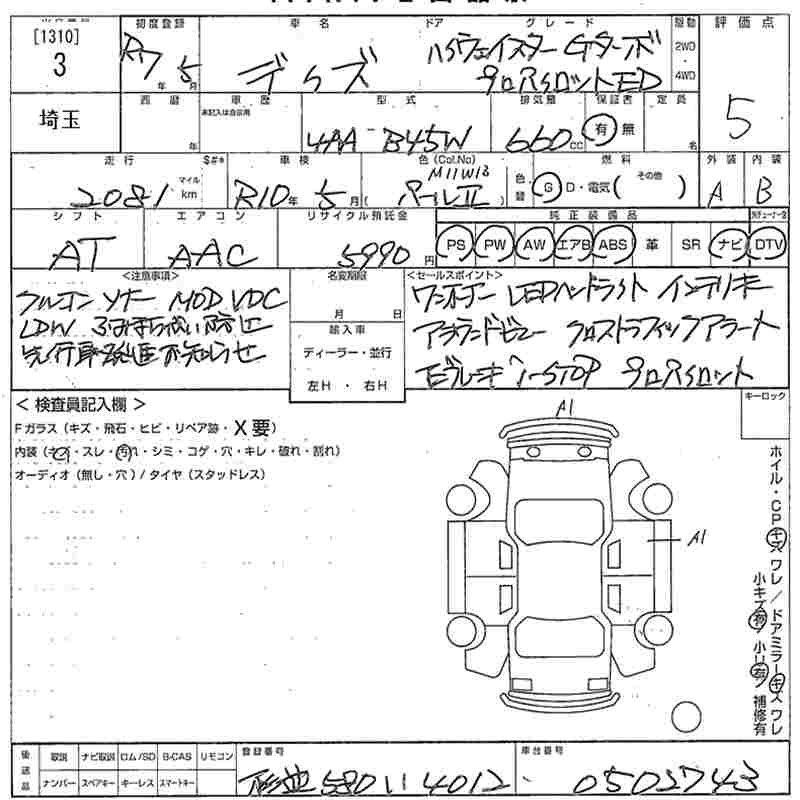 [1310]
3
初度登録
R7 年 5 月
車名
デイズ
ドア グレード
ハイウェイスター Gターボ
プロパイロットED
駆動
2WD
4WD
評価点
5
埼玉
西暦
年
車歴
未記入は自家用
型式
4AA B45W
排気量
660 CC
保証書
有 無
定員
名
走行 $#*
2081 マイル km
車検
R10 年 5 月
色 (Col.No)
M11W13
パールII
色替
燃料
G D・電気( その他 )
外装
A
内装
B
シフト
AT
エアコン
AAC
リサイクル預託金
5990 円
純正装備品
PS PW AW エアB ABS 革 SR ナビ DTV
<注意事項>
フルセグ ソナー MOD VDC
LDW ふみまちがい防止
先行車発進お知らせ
名変期限
月 日
輸入車
ディーラー・並行
左H ・ 右H
<セールスポイント>
ワンオーナー LEDヘッドライト インテリキー
アラウンドビュー クロストラフィックアラート
Eブレーキ I-STOP プロパイロット
キーロック
< 検査員記入欄 >
Fガラス (キズ・飛石・ヒビ・リペア跡・X要)
内装 (キズ・スレ・汚れ・シミ・コゲ・穴・キレ・破れ・割れ)
オーディオ (無し・穴) / タイヤ (スタッドレス)
A1
A1
ホイル・CP キズ ワレ / ドアミラー キズ ワレ
小キズ有 小凹有 補修有
後送品
取説 ナビ取説 ロム/SD B-CAS リモコン
ナンバー スペアキー キーレス スマートキー
登録番号
580 い 4012
車台番号
0502743